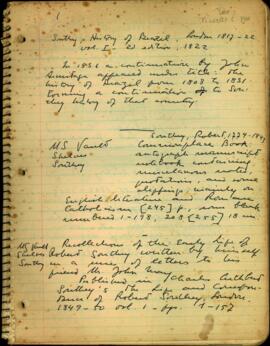 1
Southey - History of Brazil, London 1817-22
vol I - 2d edition, 1822
In 1836 a continuation by John
appeared under title: The
history of Brazil from 1808 to 1831
forming a continuation of Sou-
they history of that country.
Southey, Robert, 1774-1843
MS Vault
Commonplace Book
Shelves
autograph manuscript
Southey
notebook containing
miscellaneous notes,
quotations, and some
clippings, mainly on
English literature and Roman
Catholicism [295] p., some blank
numbered 1-198, 203 [255] 18 cm
MS Vault
Recollections of the Early Life of
Shelves
Robert Southey written by himself
Southey
in a series of letters to his
friend Mr John May
Published in Charles Cuthbert
Southey's The Life and Correspon-
dence of Robert Southey, London,
1849-50 vol. 1 - pp. 1-157